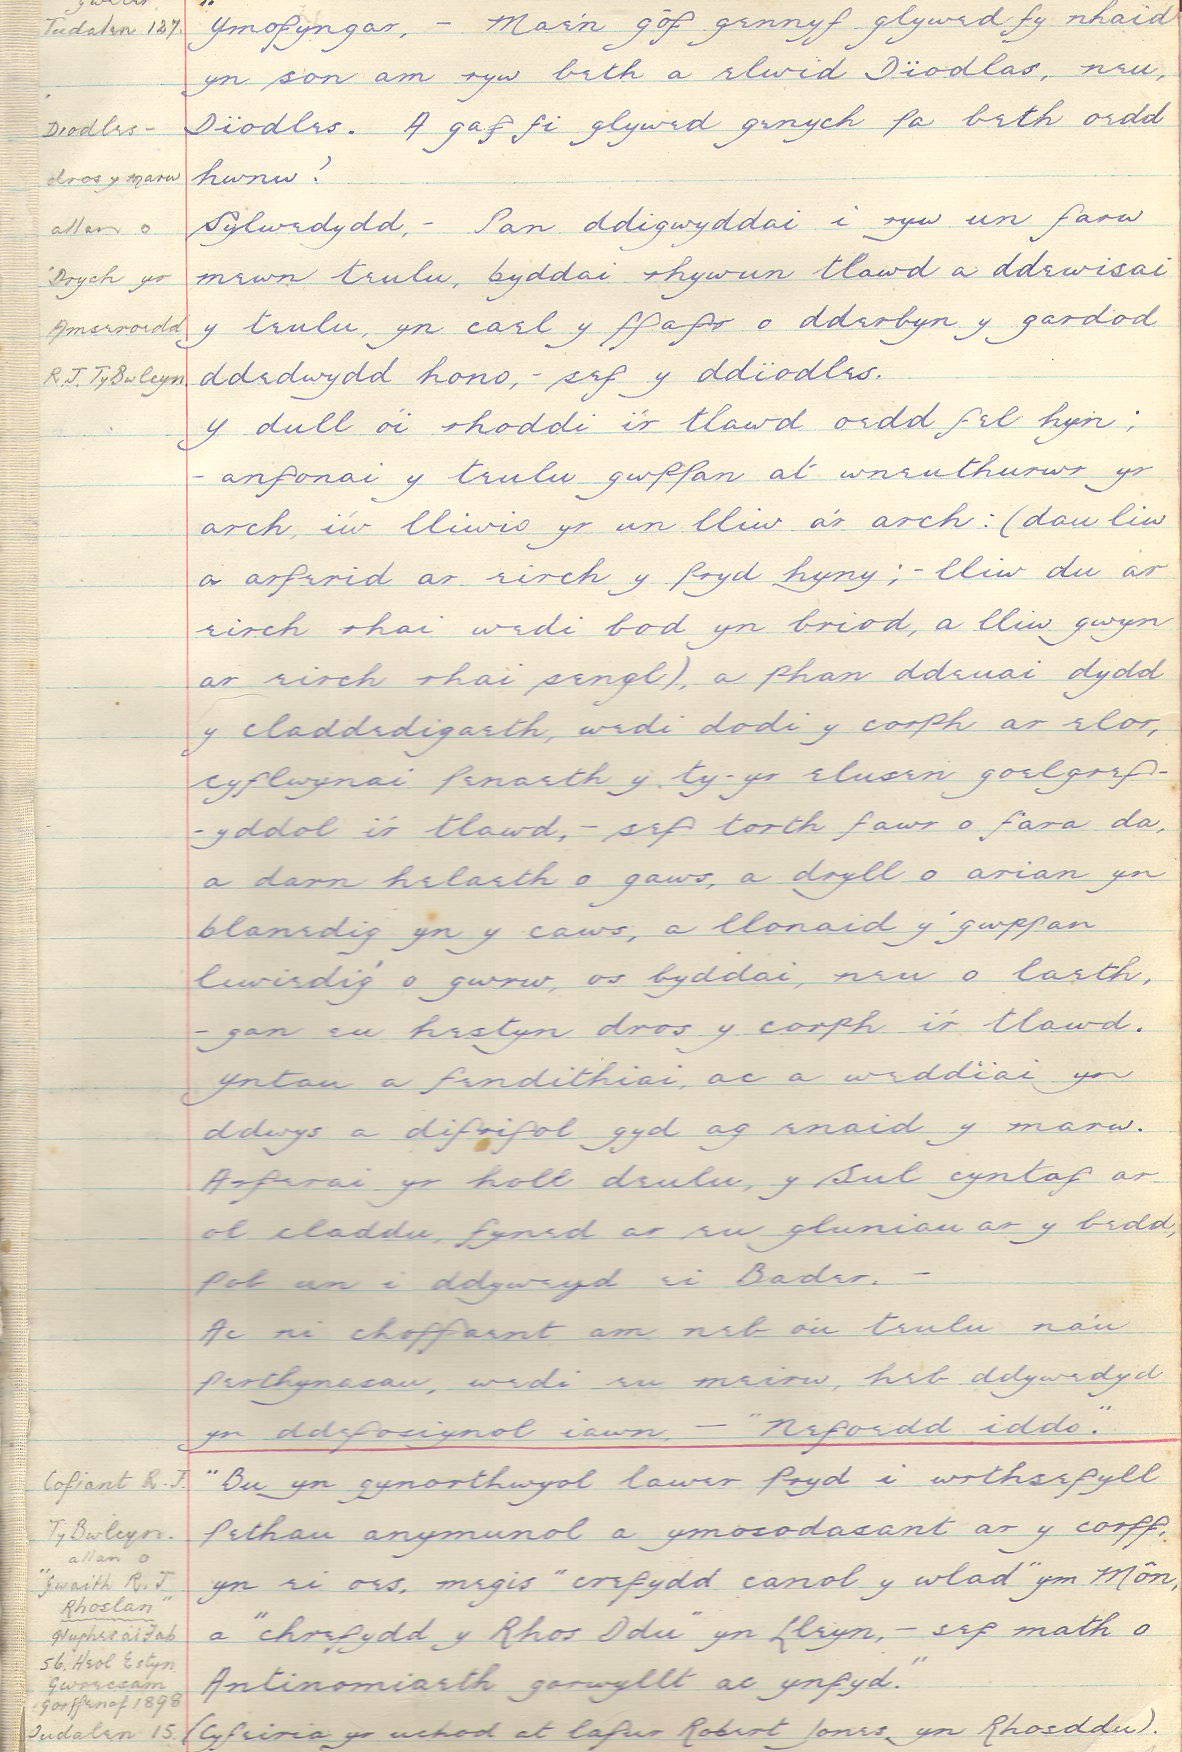 Tudalen 127.
"Ymofyngar, - Mae'n gôf gennyf glywed fy nhaid
yn son am ryw beth a elwid Dïodlas, neu,
Dïodles. A gaf fi glywed genych pa beth oedd
hwnw?
Sylwedydd, - Pan ddigwyddai i ryw un farw
mewn teulu, byddai rhywun tlawd a ddewisai
y teulu, yn cael y ffafr o dderbyn y gardod
ddedwydd hono, - sef y ddïodles.
Y dull o'i rhoddi i'r tlawd oedd fel hyn;
- anfonai y teulu gwppan at wneuthurwr yr
arch, i'w lliwio yr un lliw a'r arch: (dau liw
a arferid ar eirch y pryd hyny; - lliw du ar
eirch rhai wedi bod yn briod, a lliw gwyn
ar eirch rhai sengl), a phan ddeuai dydd
y claddedigaeth, wedi dodi y corph ar elor,
cyflwynai penaeth y ty - yr elusen goelgref-
-yddol i'r tlawd, - sef torth fawr o fara da,
a darn helaeth o gaws, a dryll o arian yn
blanedig yn y caws, a llonaid y gwppan
liwiedig o gwrw, os byddai, neu o laeth,
- gan eu hestyn dros y corph i'r tlawd.
Yntau a fendithiai, ac a weddïai yn
ddwys a difrifol gyd ag enaid y marw.
Arferai yr holl deulu, y Sul cyntaf ar
ol claddu, fyned ar eu gluniau ar y bedd,
pob un i ddyweyd ei Bader. -
Ac ni choffaent am neb o'u teulu na'u
perthynasau, wedi eu meirw, heb ddywedyd
yn ddefosiynol iawn, - "Nefoedd iddo."
Diodles -
dros y marw
allan o
'Drych yr
Amseroedd
R. J. Ty Bwlcyn
"Bu yn gynorthwyol lawer pryd i wrthsefyll
pethau anymunol a ymosodasant ar y corff,
yn ei oes, megis "crefydd canol y wlad" ym Môn,
a "chrefydd y Rhos Ddu" yn Lleyn, - sef math o
Antinomiaeth gorwyllt ac ynfyd."
(Cyfeiria yr uchod at lafur Robert Jones, yn Rhosddu).
Cofiant R. J.
Ty Bwlcyn.
allan o
"Gwaith R. J
Rhoslan"
56. Heol Estyn
Gwrecsam
Gorffenaf 1898
Tudalen 15.